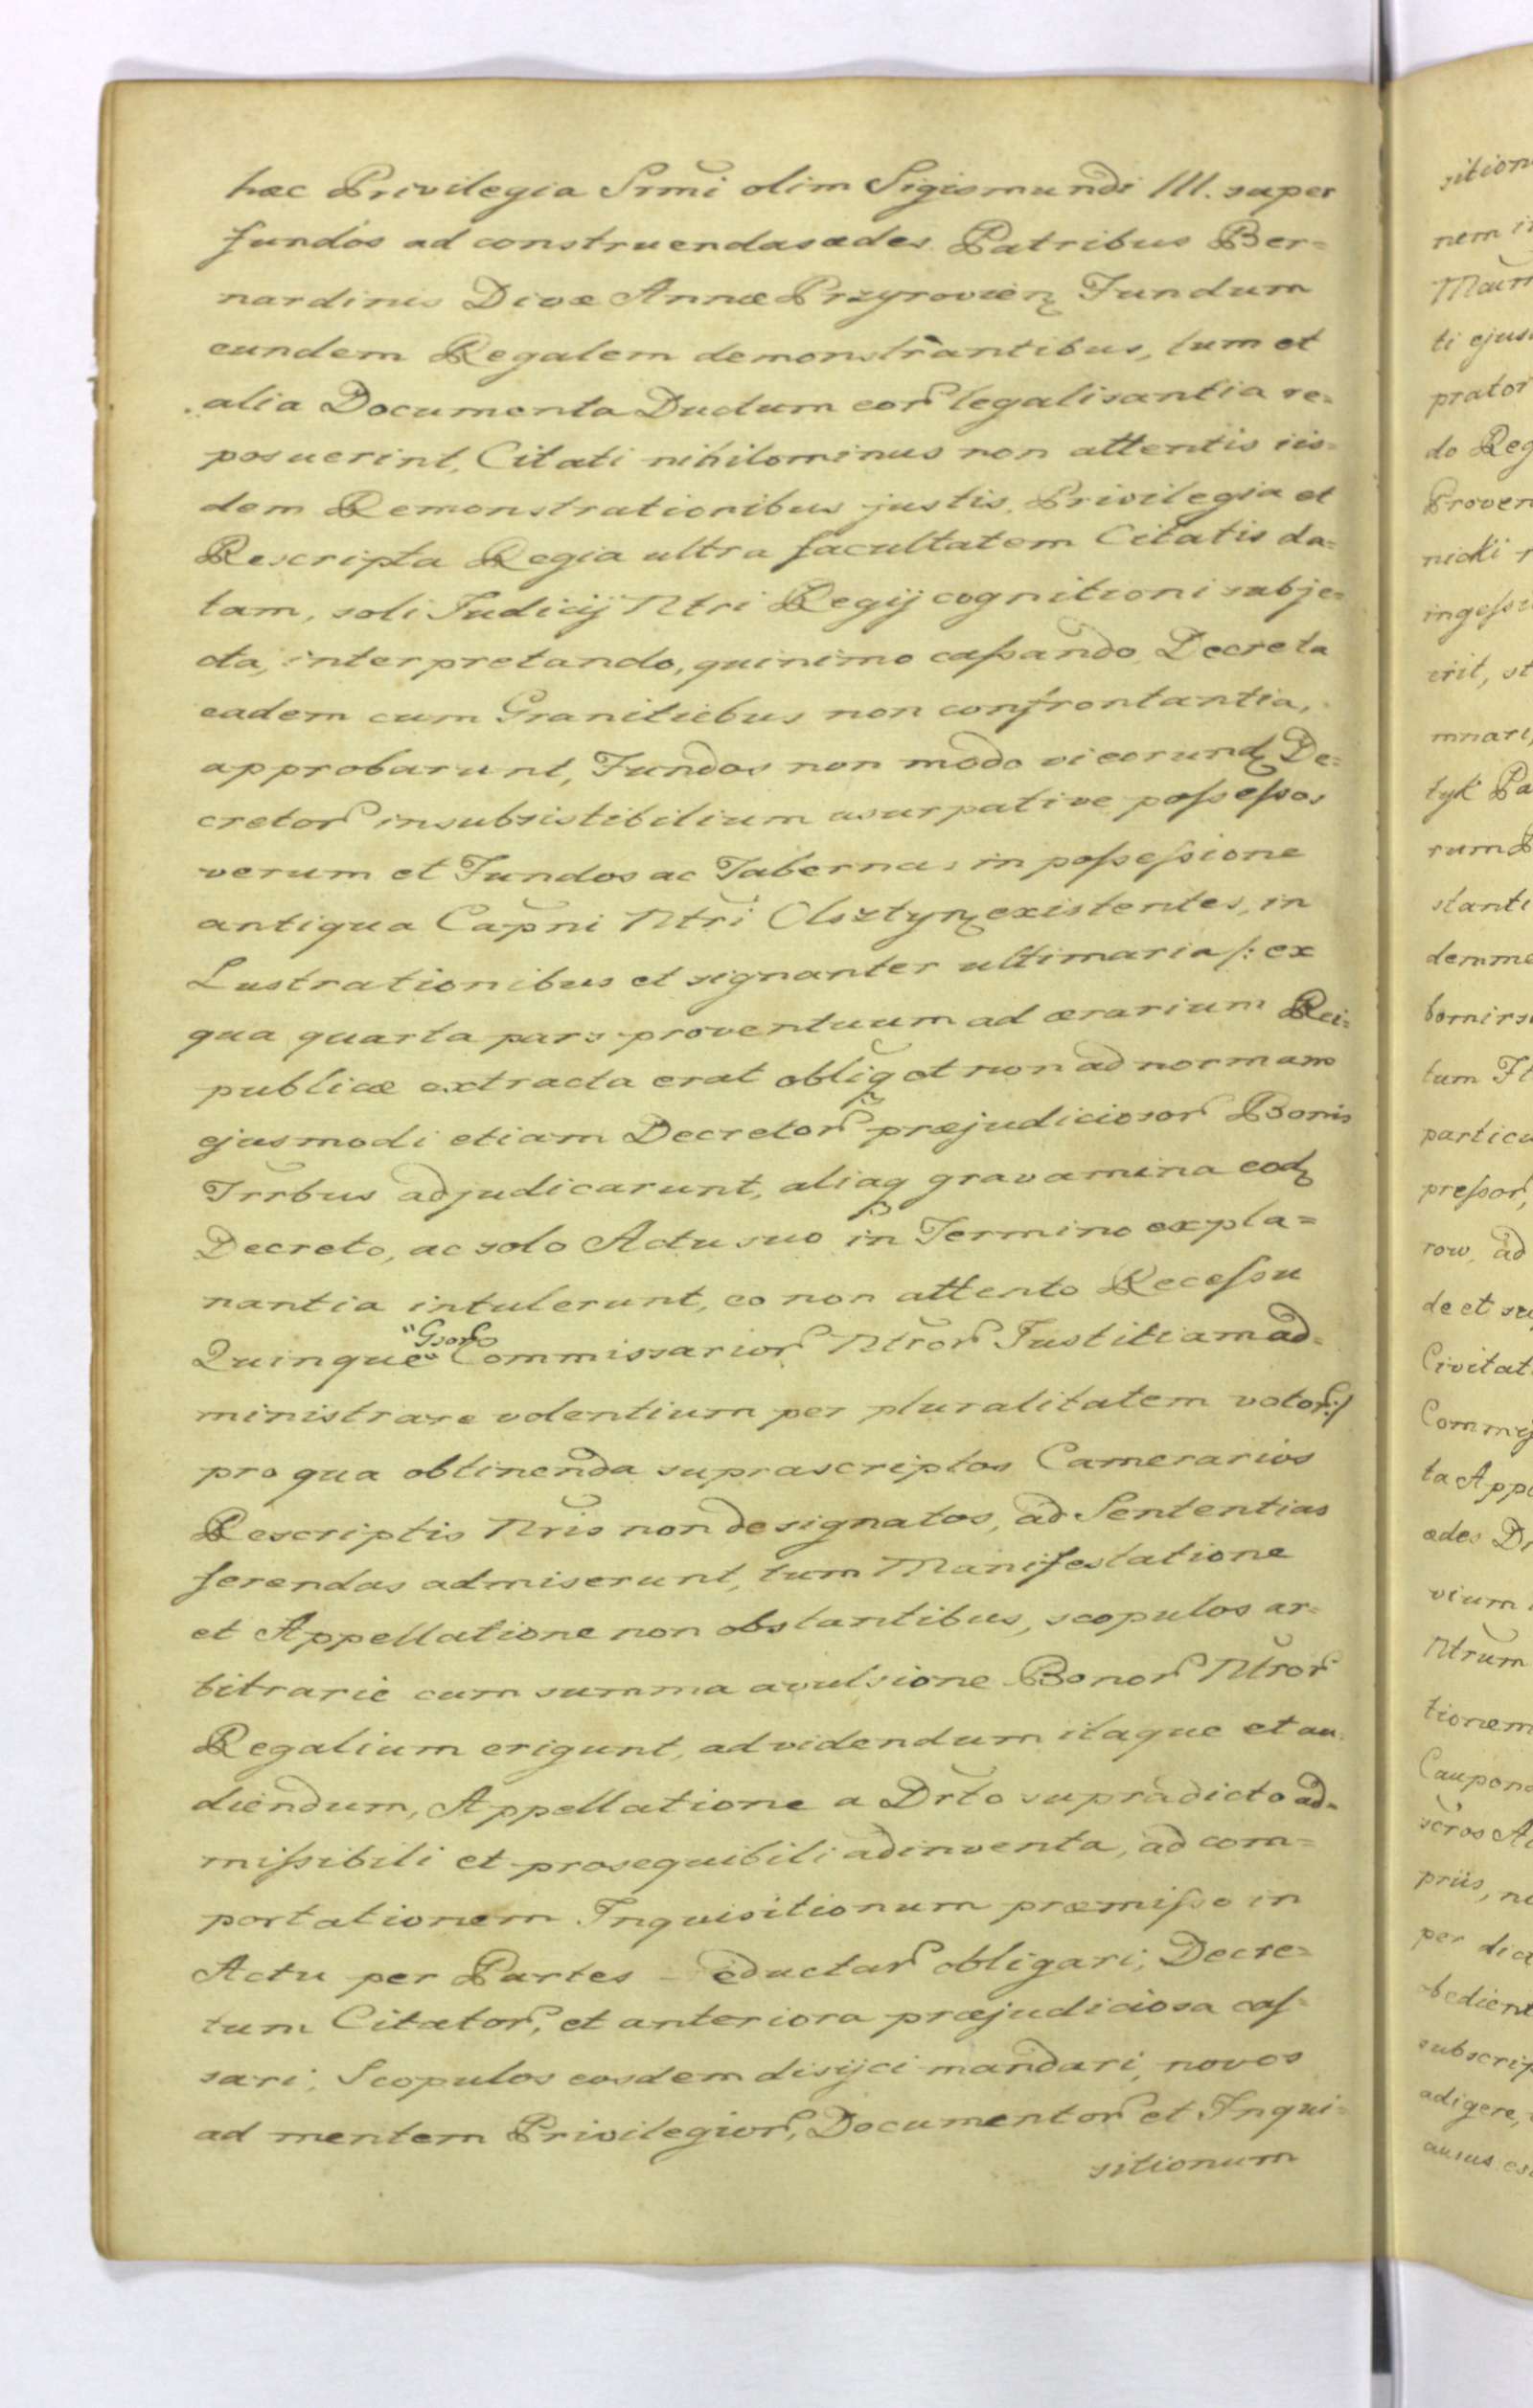 hæc Privilegia Srmi olim Sigismundi III. super
fundos ad construendas ædes Patribus Ber=
nardinis Divæ Annæ Przyrovien Fundum
eundem Regalem demonstrantibus, tum et
alia Documenta Dudum eor legalisantia re=
posuerint, Citati nihilominus non attentis iis=
dem Remonstrationibus justis, Privilegia et
Rescripta Regia ultra facultatem Citatis da=
tam, soli Judicij Ntri Regij cognitioni subje=
cta, interpretando, quinimo cassando, Decreta
eadem cum Granitiebus non confrontantia,
approbarunt, Fundos non modo vi eorund De=
cretor insubsistibilium usurpative possessos
verum et Fundos ac Tabernas in possessione
antiqua Capni Ntri Olsztyn existentes, in
Lustrationibus et signanter ultimaria /: ex
qua quarta pars proventuum ad ærarium Rei=
publicæ extracta erat obliq et non ad normam
ejusmodi etiam Decretor præjudiciosor Bonis
Trrbus adjudicarunt, aliaq gravamina eod
Decreto, ac solo Actu suo in Termino expla=
nantia intulerunt, eo non attento Recessu
Quinque Gsor Commissarior Ntror Justitiam ad=
ministrare volentium per pluralitatem votor :/
pro qua obtinenda suprascriptos Camerarios
Rescriptis Nris non designatos, ad Sententias
ferendas admiserunt, tum Manifestatione
et Appellatione non obstantibus, scopulos ar=
bitrarie cum summa avulsione Bonor Ntror
Regalium erigunt, ad videndum itaque et au=
diendum, Appellatione a Drto supradicto ad=
missibili et prosequibili adinventa, ad com=
portationem Inquisitionum præmisso in
Actu per Partes eductar obligari; Decre=
tum Citator, et anteriora præjudiciosa cas=
sari, Scopulos eosdem disijci mandari, novos
ad mentem Privilegior, Documentor et Inqui=
sitionum